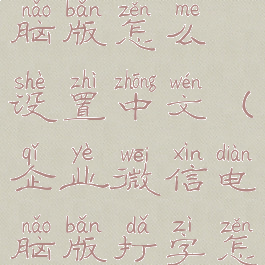 nǎo bǎn zěn me
脑版怎么
shè zhì zhōng wén
设置中文（
qǐ yè wēi xìn diàn
企业微信电
nǎo bǎn dǎ zì zěn
脑版打字怎